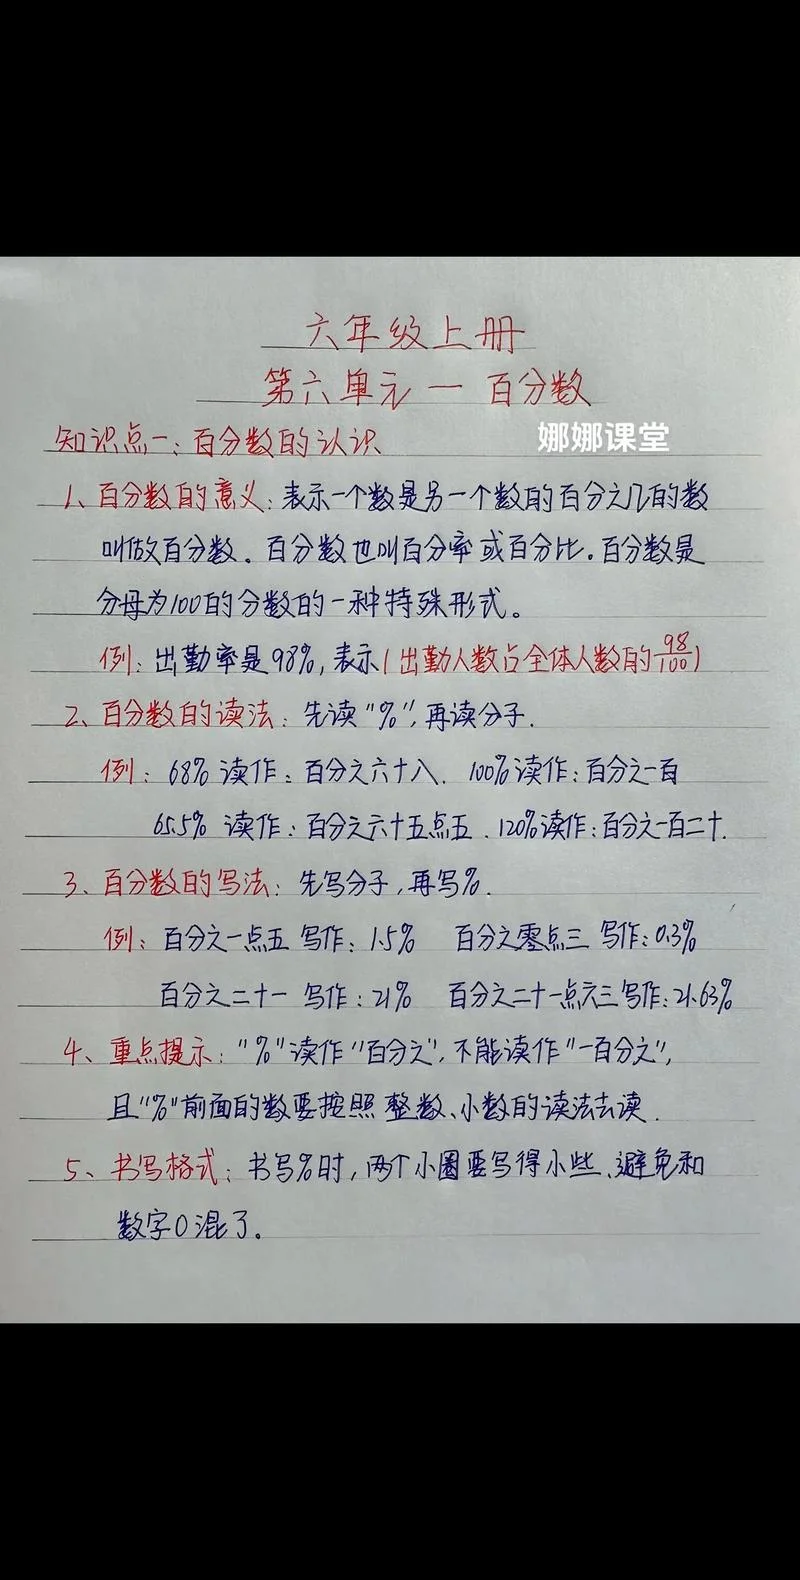 六年级上册
第六单元 — 百分数
知识点一：百分数的认识
娜娜课堂
1、百分数的意义：表示一个数是另一个数的百分之几的数
叫做百分数。百分数也叫百分率或百分比。百分数是
分母为100的分数的一种特殊形式。
例：出勤率是98%，表示(出勤人数占全体人数的98/100)
2、百分数的读法：先读"%"，再读分子.
例：68% 读作：百分之六十八. 100%读作：百分之一百
65.5% 读作：百分之六十五点五. 120%读作：百分之一百二十.
3、百分数的写法：先写分子，再写%.
例：百分之一点五 写作：1.5% 百分之零点三 写作：0.3%
百分之二十一 写作：21% 百分之二十一点六三写作：21.63%
4、重点提示："%"读作"百分之"，不能读作"一百分之"，
且"%"前面的数要按照整数、小数的读法去读.
5、书写格式：书写%时，两个小圈要写得小些、避免和
数字0混了。